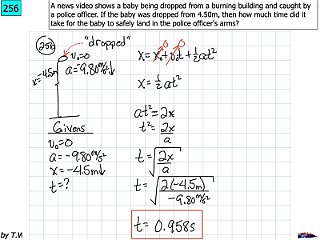 256
A news video shows a baby being dropped from a burning building and caught by a police officer. If the baby was dropped from 4.50m, then how much time did it take for the baby to safely land in the police officer's arms?
256
"dropped"
v₀=0
a=-9.80m/s²↓
x=-4.5m
x=x₀+v₀t+½at²
0 0
x=½at²
at²=2x
t²=2x/a
t=√(2x/a)
t=√(2(-4.5m)/-9.80m/s²)
t=0.958s
Givens
v₀=0
a=-9.80m/s²
x=-4.5m↓
t=?
by T.W